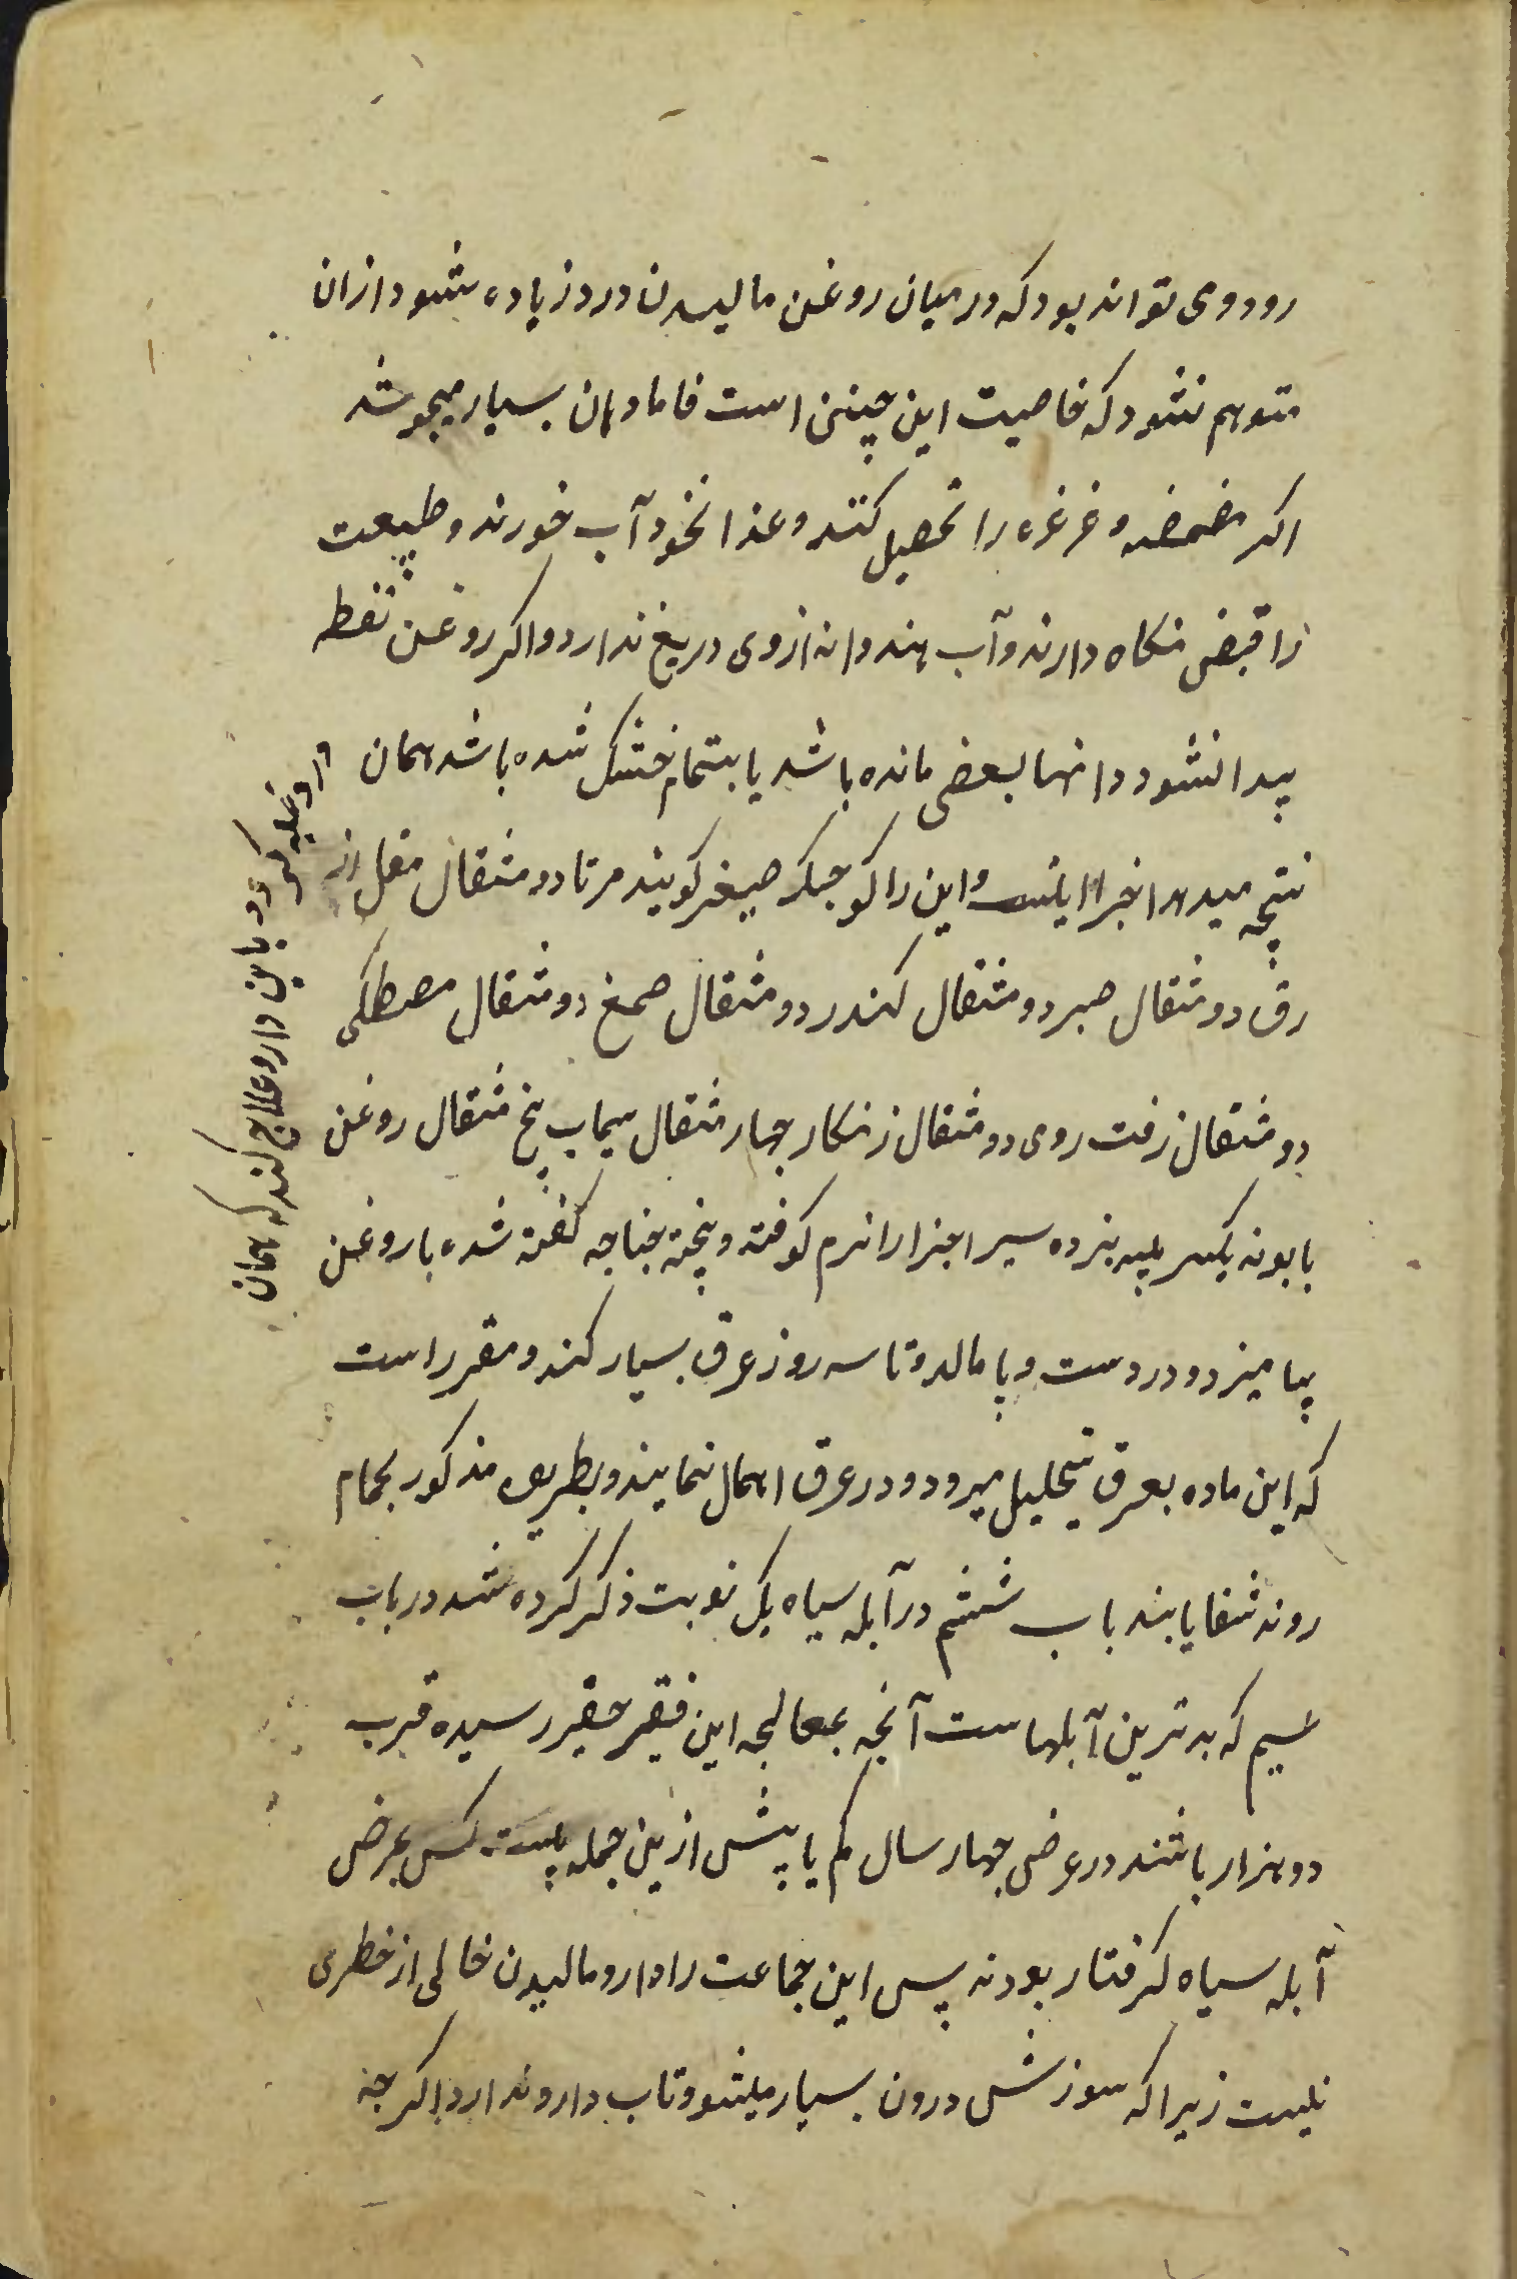 رود وی تواند بود که در میان روغن مالیدن درد زیاده شود ازان
متوهم نشود که خاصیت این چنین است فاما دهان بسیار میجوشد
اکر مضمضه و غرغره را تحصیل کنند و غذا نخود آب خورند و طبیعت
را قبض نکاه دارند و آب هندوانه ازوی دریغ ندارد و اکر روغن نفطه
پیدا نشود دانها بعضی مانده باشد یا بتمام خشک شده باشد همان
نتیجه میدهد اجزا اینست و این را کوچکر صیغر کویند مرتا دو مثقال مقل از
رق دو مثقال صبر دو مثقال کندر دو مثقال صمغ دو مثقال مصطکی
دو مثقال زفت روی دو مثقال زنکار جهار مثقال سیماب پنج مثقال روغن
بابونه یکسر پیه بز ده سیر اجزا را نرم کوفته و پخته جناجه کفته شده با روغن
بیامیزد و در دست و پا مالد و تا سه روز عرق بسیار کند و مقرر است
که این ماده بعرق تحلیل میرود و در عرق اهمال ننمایند و بطریق مذکور بحمام
روند شفا یابند باب ششم در آبله سیاه یک نوبت ذکر کرده شد در باب
سیم که بدترین آبلهاست آنجه بمعالجه این فقیر حقیر رسیده قرب
دو هزار باشند در عرض جهار سال کم یا بیش ازین جمله بیست کس بمرض
آبله سیاه کرفتار بودند پس این جماعت را دارو مالیدن خالی از خطری
نیست زیرا که سوزش درون بسیار میشود و تاب دارو ندارد اکر جه
کردد باین دارو علاج کند که همان